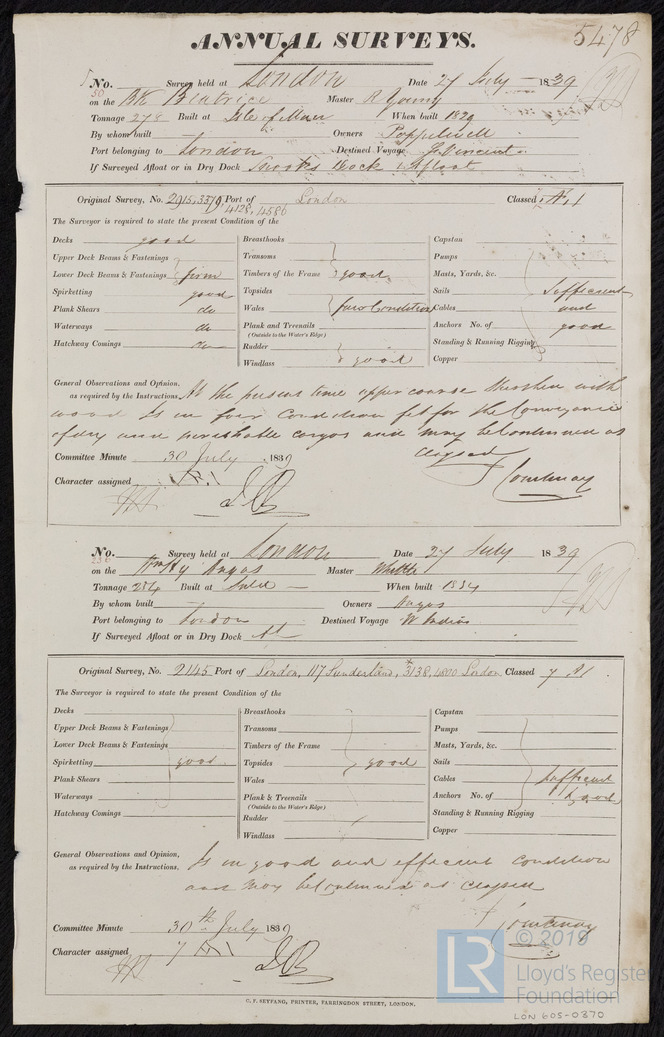 ANNUAL SURVEYS.
5478
No. Survey held at London Date 27 July 1839
50
on the Bk Beatrice Master R Young
Tonnage 278 Built at Isle of Man When built 1829
By whom built Owners Popplewell
Port belonging to London Destined Voyage St Vincent
If Surveyed Afloat or in Dry Dock Dock & Afloat
Original Survey, No. 2915, 3379, Port of London Classed
4128, 4586
The Surveyor is required to state the present Condition of the
Decks good Breasthooks Capstan
Upper Deck Beams & Fastenings Transoms Pumps
Lower Deck Beams & Fastenings firm Timbers of the Frame good Masts, Yards, &c.
Spirketting good Topsides Sails Sufficient
Plank Shears do Wales fair Condition Cables and
Waterways do Plank and Treenails Anchors No. of good
(Outside to the Water's Edge)
Hatchway Comings do Rudder Standing & Running Rigging
Windlass good Copper
General Observations and Opinion,
as required by the Instructions, At the present time appr course with
wood Is in fair condition fit for the Conveyance
of dry and perishable cargos and may be continued as
Classed
Committee Minute 30 July 1839 Courtenay
Character assigned
No. Survey held at London Date 27 July 1839
236
on the Angas Master Whittle
Tonnage 234 Built at When built 1834
By whom built Owners Angas
Port belonging to London Destined Voyage W Indies
If Surveyed Afloat or in Dry Dock
Original Survey, No. 2145 Port of London, 117 Sunderland, 3138, 4800 London Classed 7 A1
The Surveyor is required to state the present Condition of the
Decks Breasthooks Capstan
Upper Deck Beams & Fastenings Transoms Pumps
Lower Deck Beams & Fastenings Timbers of the Frame Masts, Yards, &c.
Spirketting good Topsides good Sails
Plank Shears Wales Cables Sufficient
Waterways Plank & Treenails Anchors No. of & good
(Outside to the Water's Edge)
Hatchway Comings Rudder Standing & Running Rigging
Windlass Copper
General Observations and Opinion,
as required by the Instructions, Is in good and efficient condition
and may be continued as classed
Courtenay
Committee Minute 30th July 1839
Character assigned 7 A1
C. F. SEYFANG, PRINTER, FARRINGDON STREET, LONDON.
LR
© 2019
Lloyd's Register
Foundation
LON 605-0370